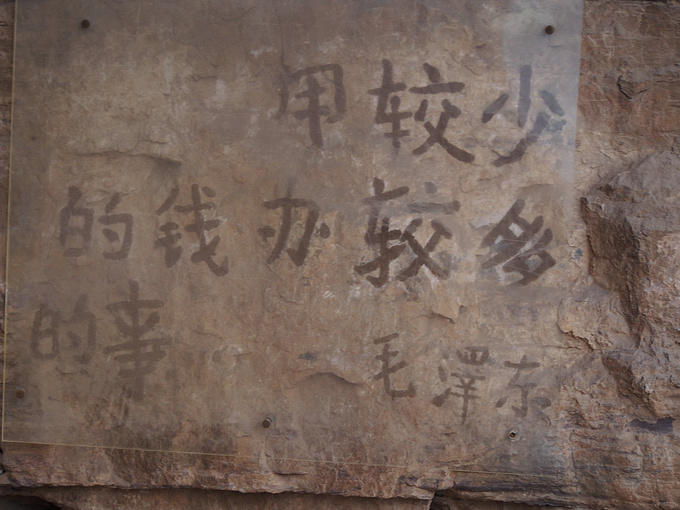 用较少
的钱办较多
的事
毛澤东